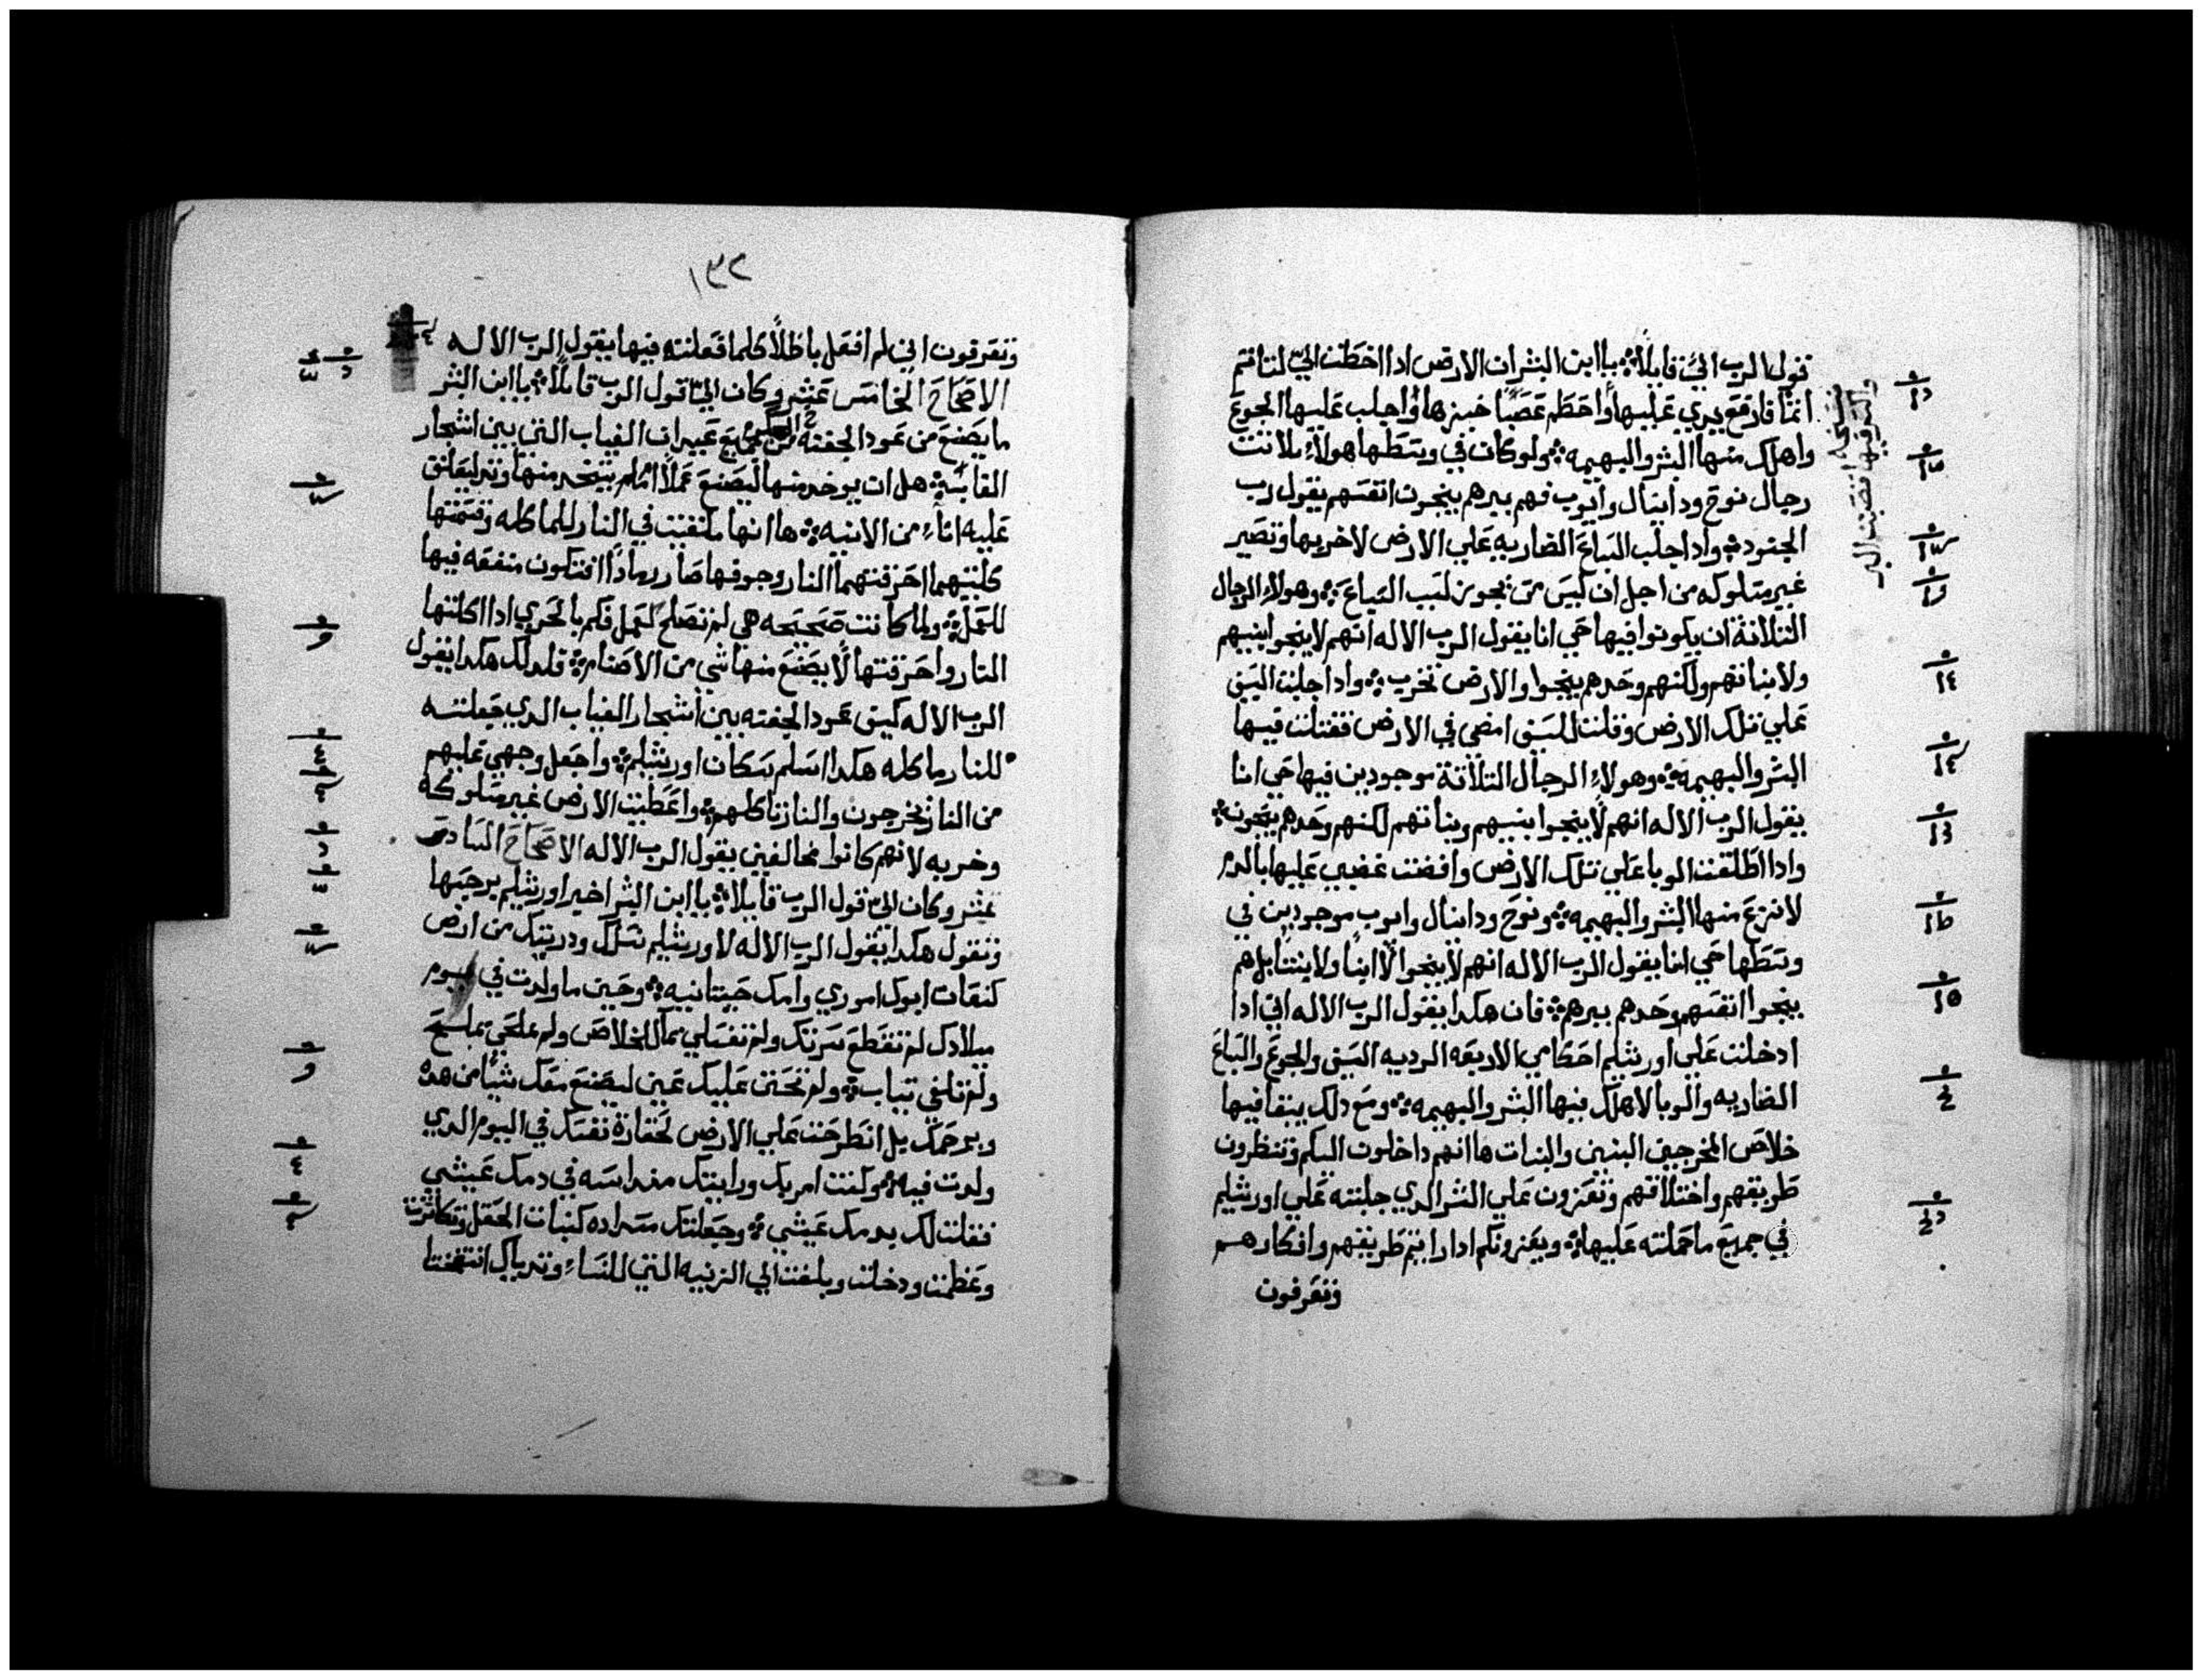 قول الرب اليّ قايلاً ياابن البشر ان الارض ادا اخطت اليّ لتاتم
اتمًا فارفع يدي عليها واحطم عصًا خبزها واجلب عليها الجوع
واهلك منها البشر والبهيمه ولو كان في وسطها هولاء الثلاثت
رجال نوح ودانيال وايوب فهم ببرهم ينجون انفسهم يقول رب
الجنود وادا جلب السباع الضاريه علي الارض لاخربها وتصير
غير مسلوكه من اجل ان ليس من يجوز لسبب السباع وهولاء الرجال
التلاتة ان يكونوا فيها حي انا يقول الرب الاله انهم لا ينجوا بنيهم
ولا بناتهم ولكنهم وحدهم ينجوا والارض تخرب وادا جلبت السيف
علي تلك الارض وقلت للسيف امضي في الارض فقتلت فيها
البشر والبهيمه وهولاء الرجال التلاتة موجودين فيها حي انا
يقول الرب الاله انهم لا ينجوا بنيهم وبناتهم لكنهم وحدهم ينجون
وادا اطلقت الوبا علي تلك الارض وافضت غضبي عليها بالدم
لانزع منها البشر والبهيمه ونوح ودانيال وايوب موجودين في
وسطها حي انا يقول الرب الاله انهم لا ينجوا لا ابنًا ولا بنتًا بل هم
ينجوا انفسهم وحدهم ببرهم فان هكدا يقول الرب الاله اني ادا
ادخلت علي اورشليم احكامي الاربعه الرديه السيف والجوع والسباع
الضاريه والوبا لاهلك منها البشر والبهيمه ومع دلك يبقا فيها
خلاص المخرجين البنين والبنات ها انهم داخلون اليكم وتنظرون
طريقهم واختلاقهم وتتعزون علي الشر الدي جلبته علي اورشليم
في جميع ما حملته عليها ويعزونكم ادا رايتم طريقهم وافكارهم
وتعرفون
١٣٢
وتعرفون اني لم افعل باطلاً كلما فعلته فيها يقول الرب الاله
الاصحاح الخامس عشر وكان اليّ قول الرب قايلاً ياابن البشر
ما يصنع من عود الجفنه من جميع عيدان الغياب التي بين اشجار
الغابه هل ان يوخد منها ليصنع عملاً ام يتخد منها وتد ليعلق
عليه اناء من الانيه ها انها ملقيت في النار للماكله وقسمتها
كلتيهما احرقتهما النار وجوفها صار رمادًا افتكون منفعه فيها
للعمل ولما كانت صحيحه هي لم تصلح لعمل فكم بالحري ادا اكلتها
النار واحرقتها لا يصنع منها شي من الاصنام فلدلك هكدا يقول
الرب الاله كيف عود الجفنه بين اشجار الغياب الدي جعلته
للنار ماكله هكدا اسلم سكان اورشليم واجعل وجهي عليهم
من النار يخرجون والنار تاكلهم واعطيت الارض غير مسلوكه
وخربه لانهم كانوا مخالفين يقول الرب الاله الاصحاح السادس
عشر وكان اليّ قول الرب قايلا ياابن البشر اخبر اورشليم برجسها
وتقول هكدا يقول الرب الاله لاورشليم نسلك ودريتك من ارض
كنعان ابوك اموري وامك حيتانيه وحين ما ولدت في يوم
ميلادك لم تقطع سرتك ولم تغسلي بما للخلاص ولم تملحي بملح
ولم تلفي بتياب ولم تحن عليك عين ليصنع معك شيًا من هده
ويرحمك بل انطرحت علي الارض لحقارة نفسك في اليوم الدي
ولدت فيه وكنت امر بك ورايتك منداسه في دمك عيشي
فقلت لك بدمك عيشي وجعلتك مسداده كنبات الحقل وتكاترت
وعظمت ودخلت وبلغت الي الزنيه التي للنساء وتدياك انتهضتا